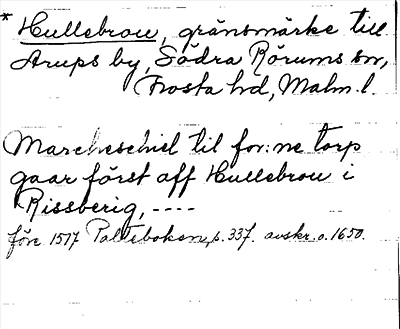 * Hullebrou, gränsmärke till
Arups by, Södra Rörums sn,
Frosta hd, Malm. l.
Marcheschiel til for:ne torp
gaar först aff Hullebrou i
Rissberig, ----
före 1517 Palteboken, p. 337. avskr. o. 1650.